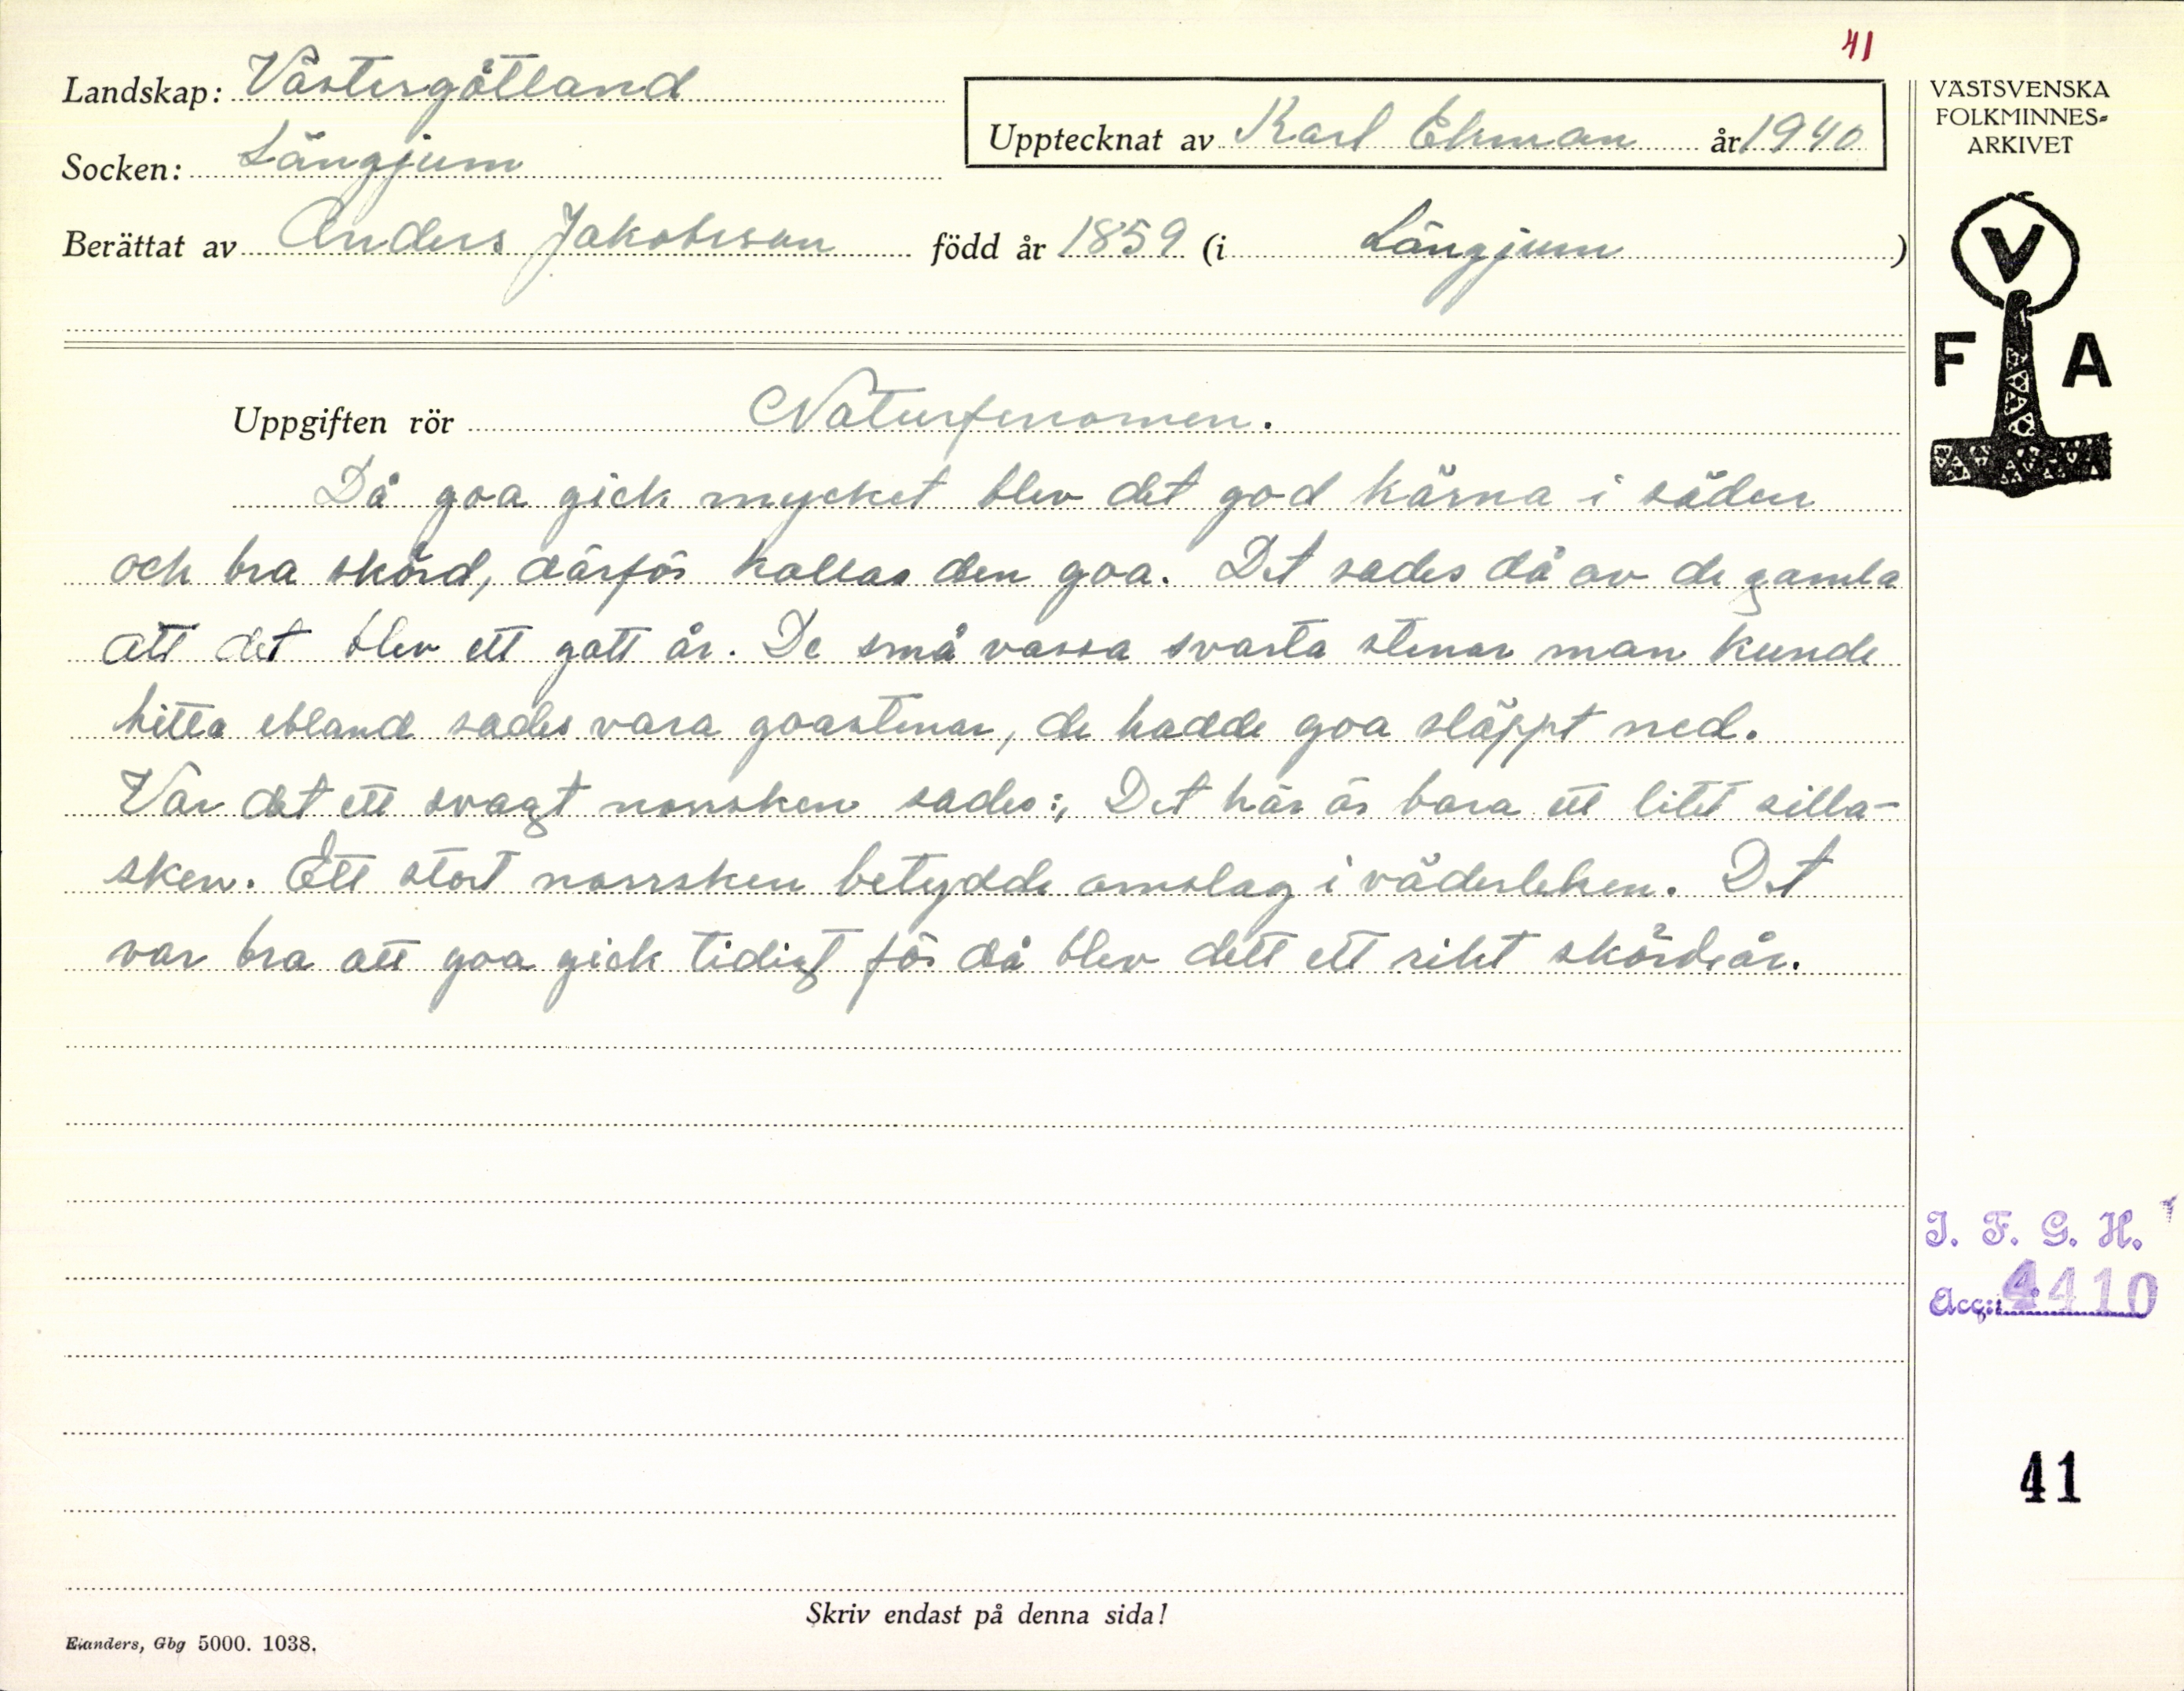 41
Landskap: Västergötland
Upptecknat av Karl Ekman år 1940
Socken: Längjum
Berättat av Anders Jakobsson född år 1859 (i Längjum)
VÄSTSVENSKA
FOLKMINNES-
ARKIVET
V
F A
Uppgiften rör Naturfenomen.
Då goa gick mycket blev det god kärna i säden
och bra skörd, därför kallas den goa. Det sades då av de gamla
att det blev ett gott år. De små vassa svarta stenar man kunde
hitta ibland sades vara goastenar, de hadde goa släppt ned.
Var det ett svagt norrsken sades:, Det här är bara ett litet silla-
sken. Ett stort norrsken betydde omslag i väderleken. Det
var bra att goa gick tidigt för då blev dett ett rikt skördeår.
I. F. G. H.
Acc: 4410
41
Skriv endast på denna sida!
Elanders, Gbg 5000. 1038.